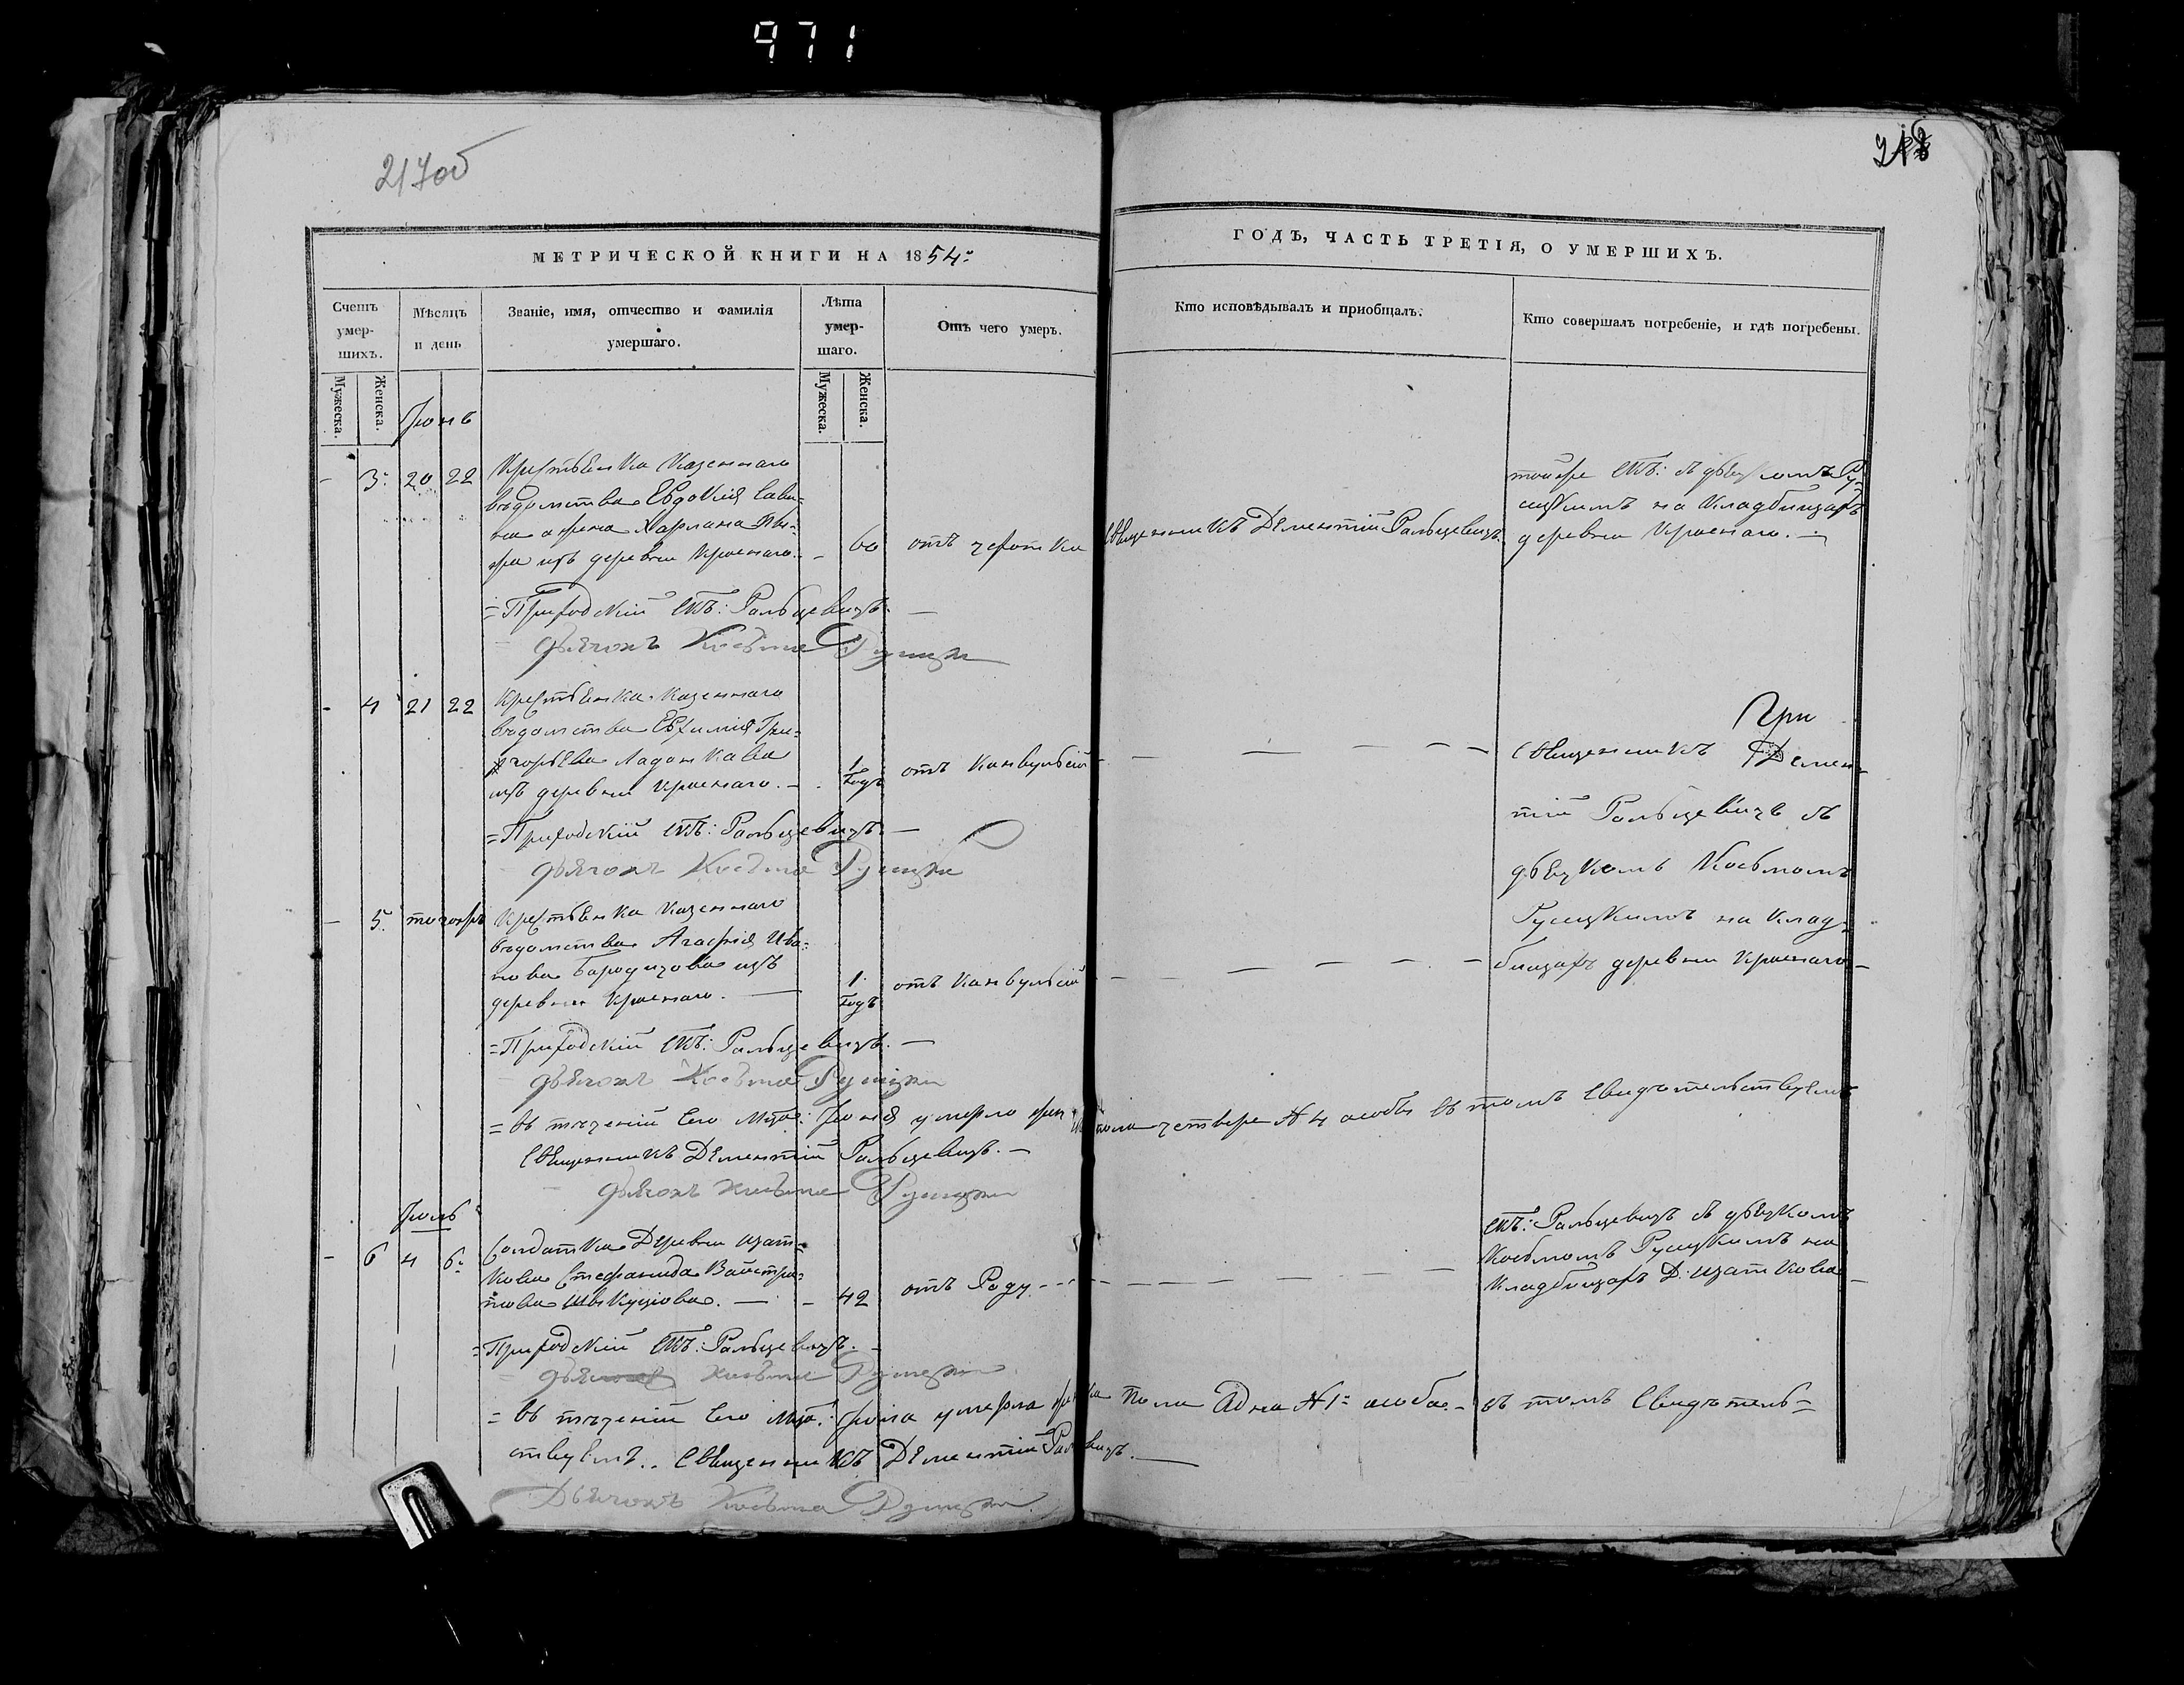 971
217об
218
МЕТРИЧЕСКОЙ КНИГИ НА 1854
ГОДЪ, ЧАСТЬ ТРЕТІЯ, О УМЕРШИХЪ.
Счетъ умер-шихъ.
Мѣсяцъ и день
Званіе, имя, отчество и фамилія умершаго.
Лѣта умер-шаго.
Отъ чего умеръ.
Кто исповѣдывалъ и приобщалъ.
Кто совершалъ погребеніе, и гдѣ погребены.
Мужеска.
Женска.
Мужеска.
Женска.
Іюнь
- 3. 20 22
Крестьянка Казеннаго
вѣдомства Евдокія Сави-
на жена
изъ деревни Краснаго. -
60
отъ чахотки
Священникъ ДементійРальцевичъ
тойже Свъ: съ дьячкомъ Ру-
ицкимъ на Кладбищахъ
деревни Краснаго. -
=Приходскій Свъ: Ральцевичъ. -
дьячокъ Косьма Руицки
- 4 21 22
Крестьянка Казеннаго
вѣдомства Евфимія Гри-
горьева Ладонкова
изъ деревни Краснаго. -
1 Годъ
отъ Конвульсій
Священникъ Демен-
тій Ральцевичъ съ
дьячкомъ Косьмомъ
Руицкимъ на Клад-
бищахъ деревни Краснаго
=Приходскій Свъ: Ральцевичъ. -
дьячокъ Косьма Руицки
- 5. тогожъ
Крестьянка Казеннаго
вѣдомства Агафія Ива-
нова изъ
деревни Краснаго. -
1. Годъ
отъ Конвульсій
=Приходскій Свъ: Ральцевичъ. -
дьячокъ Косьма Руицки
= въ теченіи Сего Мца: Іюня умерло жен пола четверо № 4 особы въ томъ Свидѣтельствуемъ
Священникъ Дементій Ральцевичъ. -
дьячокъ Косьма Руицки
Іюль
- 6 4 6
Солдатка Деревни
Стефанида
- 42
отъ Роду
Свъ: Ральцевичъ съ дьячкомъ
Косьмомъ Руицкимъ на
Кладбищахъ Д.
=Приходскій Свъ: Ральцевичъ. -
Косьма Руицки
= въ теченіи Сего Мца: Іюла умерла женска пола Адна № 1 особа. - въ томъ Свидѣтель=
ствуемъ.. Священникъ Дементій Ральцевичъ. -
Дьячокъ Косьма Руицки